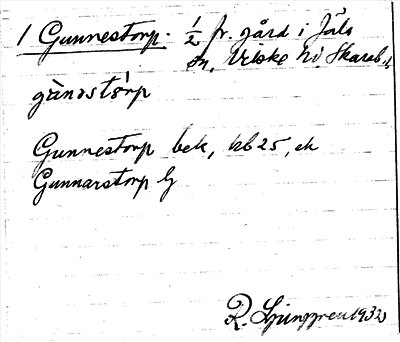 1 Gunnestorp. ½ fr. gård i Jäls
sn, Vilske hd Skarab. l.
gànɔstɔ̀rp
Gunnestorp bek, kb 25, ek
Gunnarstorp Lj
R. Ljunggren 1932